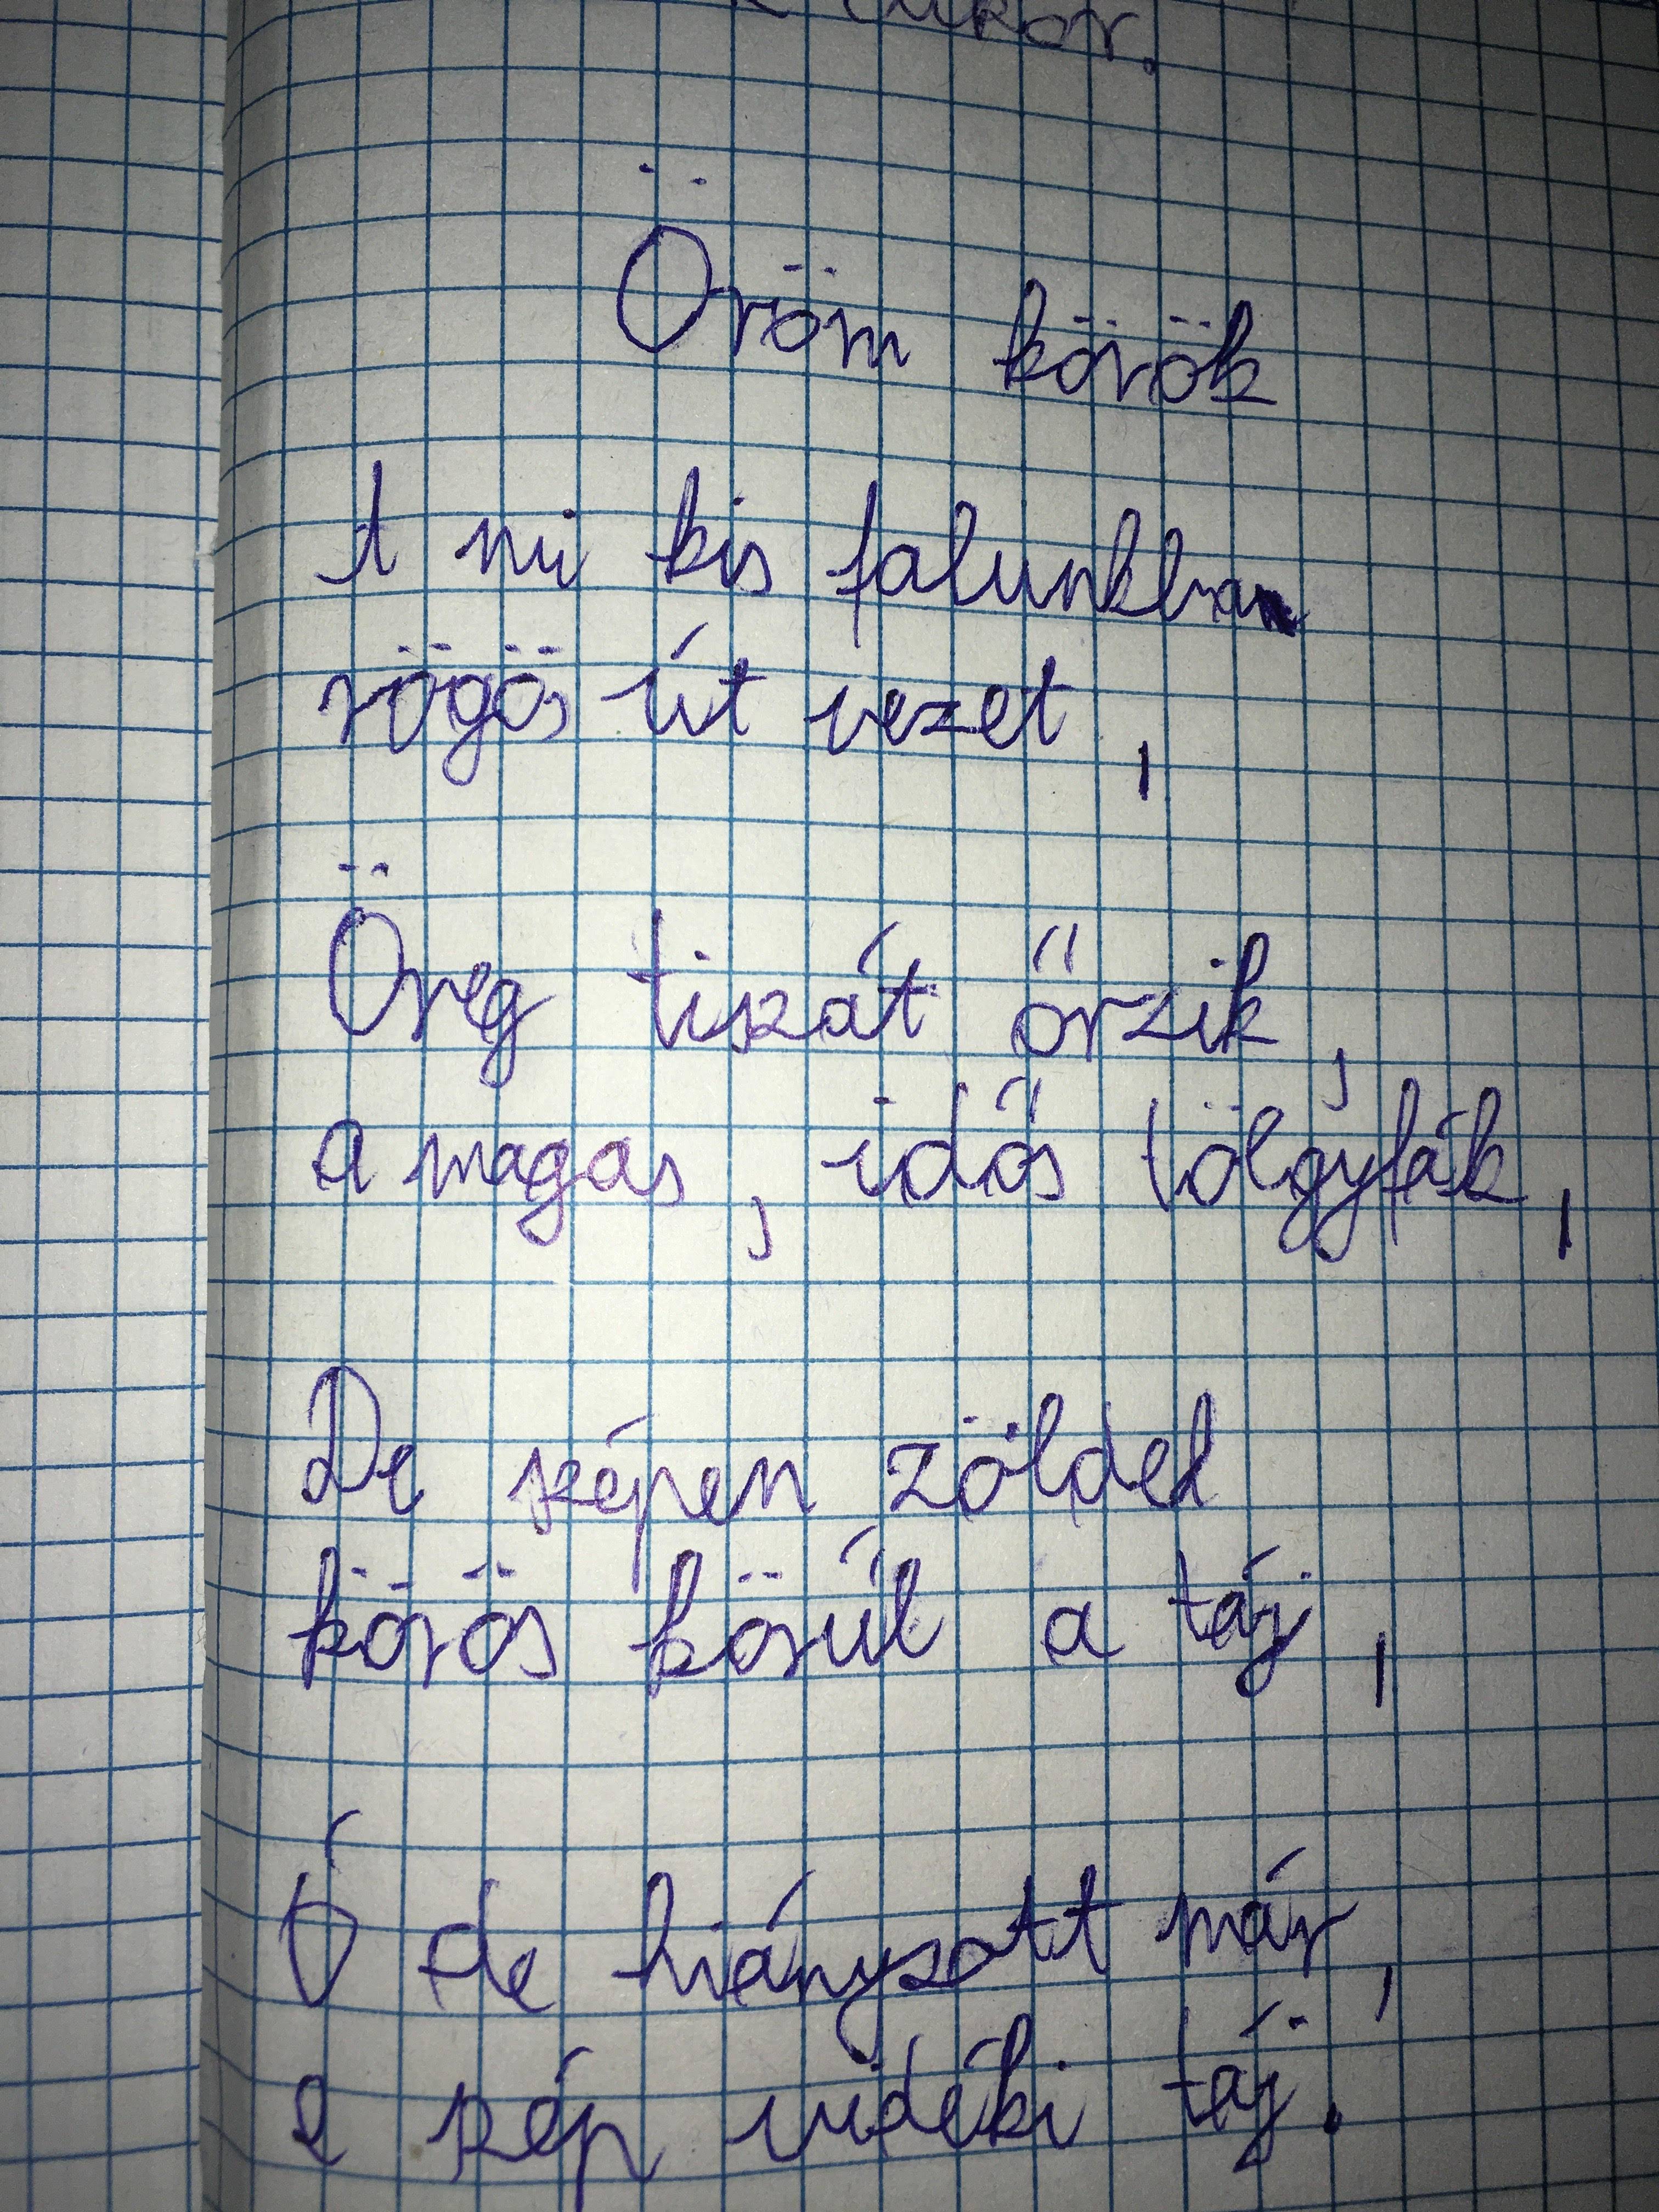 cukor.
Öröm körök
A mi kis falunkban
rögös út vezet,
Öreg tiszát őrzik,
a magas, idős tölgyfák,
De szépen zöldel
körös körúl a táj,
Ó de hiányzott már,
e szép vidéki táj.